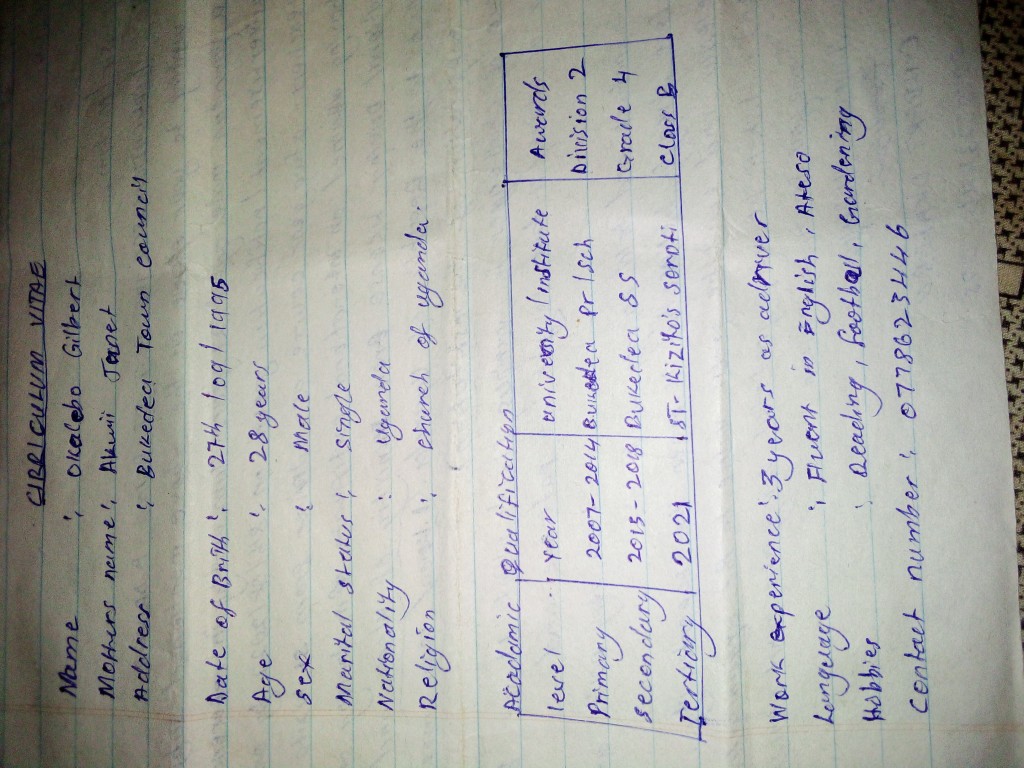 CIRRICULUM VITAE
Name : Okalebo Gilbert
Mothers name : Akwii Janet
Address : Bukedea Town council
Date of Brith : 27th / 09 / 1995
Age : 28 years
Sex : Male
Marital status : Single
Nationality : Uganda
Religion : church of uganda.
Academic Qualification
level Year university / Institute Awards
Primary 2007-2014 Bukedea Pr / Sch Division 2
Secondary 2015-2018 Bukedea SS Grade 4
Tertiary 2021 ST- Kizito's Class B
Work experience : 3 years as a driver
Language : Fluent in English, Ateso
Hobbies : Reading, football, Gardening
Contact number : 0778623446